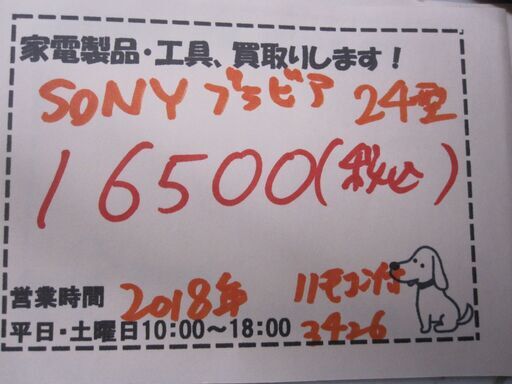 家電製品・工具、買取りします！
SONY ブラビア 24型
16500(税込)
営業時間 2018年 リモコン付
平日・土曜日10:00～18:00 3426